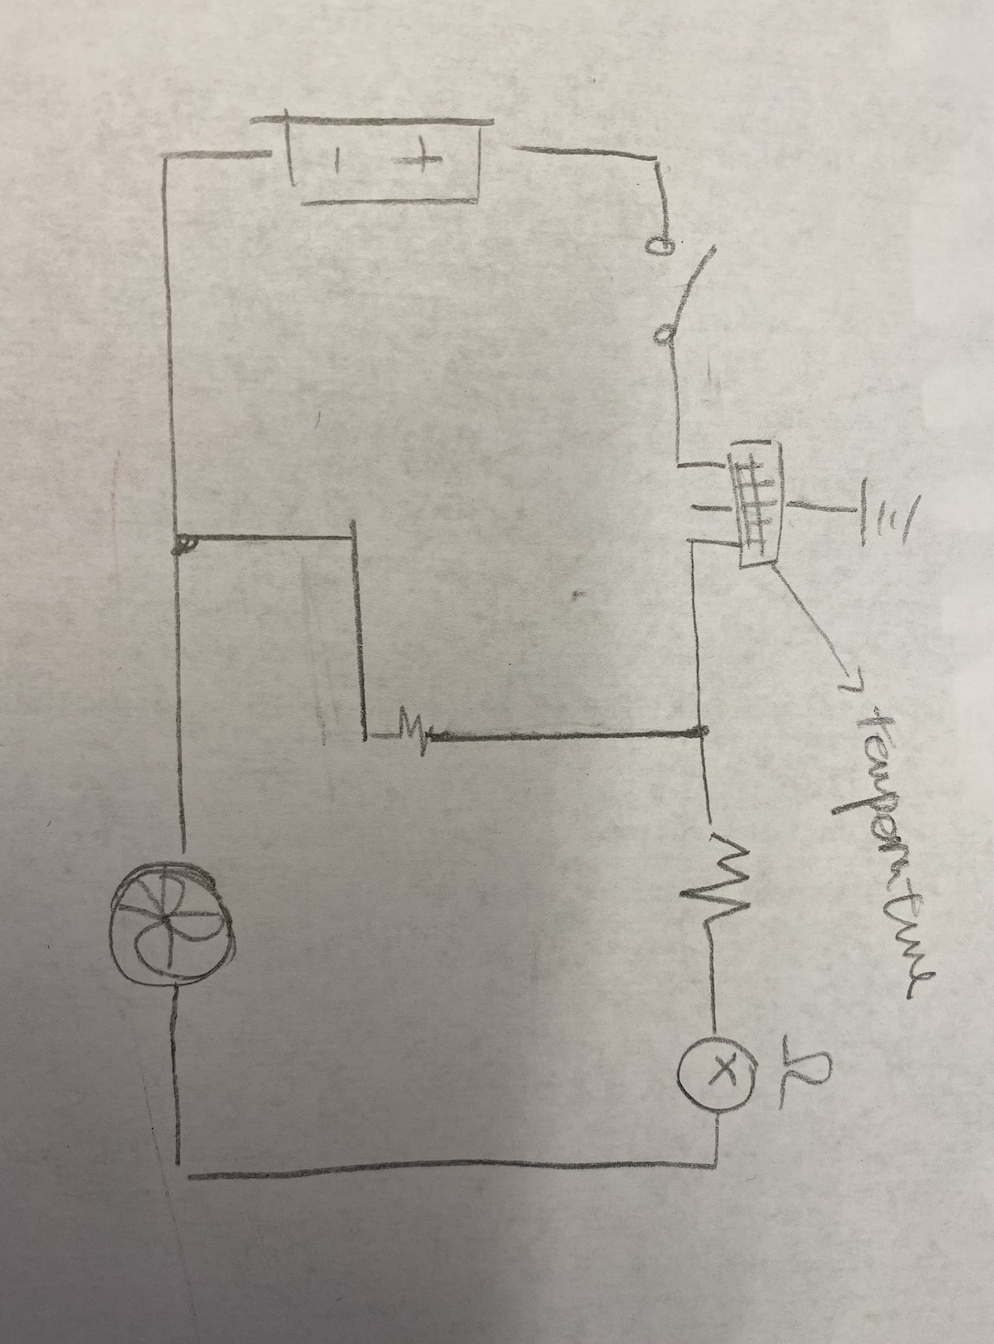 - +
temperature
X
Ω